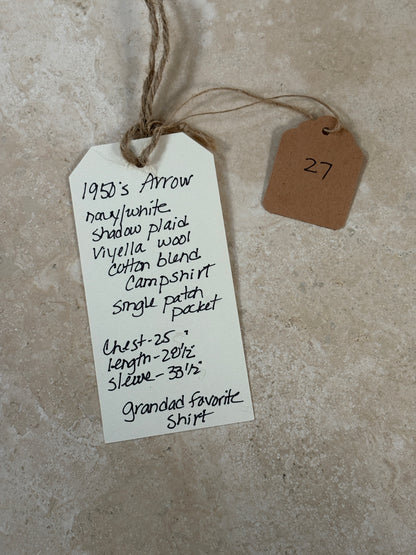 1950's Arrow
navy/white
shadow plaid
Viyella wool
cotton blend
Campshirt
single patch
pocket
Chest-25"
Length-28½"
Sleeve-33½"
grandad favorite
shirt
27